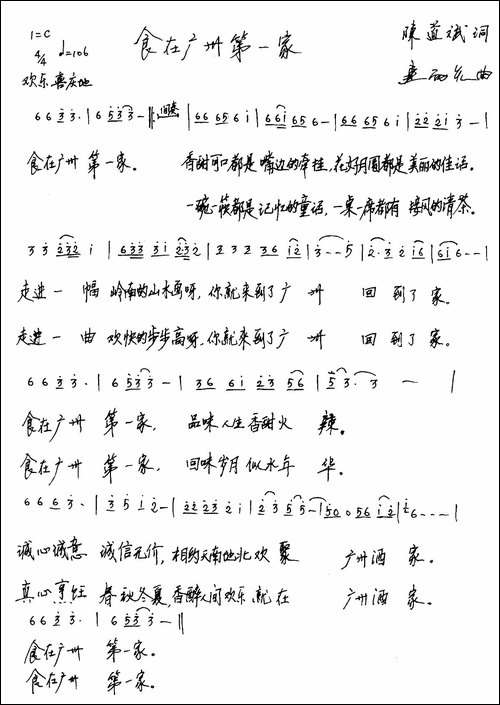 1=C
4/4 ♩=106
食在广州第一家
陈道斌词
孟丽允曲
欢乐喜庆地
6 6 3̇ 3̇· | 6 5̇3̇ 3̇ — ‖ 间奏 | 6 6 6 5 6 i | 6 6 i 6 5 6 — | 6 6 6 5 6 i | 2̇ 2̇ 2̇ i 3̇ — |
食在广州 第一家。 香甜可口都是嘴边的牵挂,花好月圆都是美丽的佳话。
一碗一筷都是记忆的童话,一桌一席都有接风的清茶。
3̇ 3̇ 2̇3̇2̇ i | 6 3̇ 3̇ 3̇ i 2̇3̇ 2̇ | 3 3 3 3 3 6 i 2̇ | 3̇ - - 5 | 2̇· 3̇ 2̇ i 6 | 6 i 6 - - |
走进一 幅 岭南的山水画呀,你就来到了广 州 回 到了 家。
走进一 曲 欢快的步步高呀,你就来到了广 州 回 到了 家。
6 6 3̇ 3̇· | 6 5̇3̇ 3̇ — | 3 6 6 i 2̇ 3̇ 5 6 | 5̇ 3̇· 3̇ — |
食在广州 第一家, 品味人生香甜火 辣。
食在广州 第一家, 回味岁月似水年 华。
6 6 6 3̇· | 3̇ 5̇ i 2̇ — | 2̇ 2̇ 2̇ 3̇ 2̇ i | 2̇ 3̇ 5̇ 5̇ — | 5 0 0 5 6 i 2̇ | i 6 - - - |
诚心诚意 诚信无价,相约天南地北欢 聚 广州酒 家。
真心烹饪 春秋冬夏,香醉人间欢乐就在 广州酒 家。
6 6 3̇ 3̇· | 6 5̇3̇ 3̇ — ‖
食在广州 第一家。
食在广州 第一家。